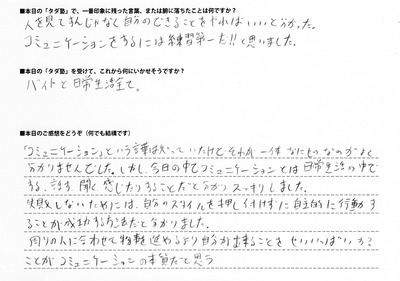 ■本日の「タダ塾」で、一番印象に残った言葉、または腑に落ちたことは何ですか？
人を見てまねじゃなく自分のできることをやればいいと分かった。
コミュニケーションをするには練習第一だ!!と思いました。
■本日の「タダ塾」を受けて、これから何にいかせそうですか？
バイトと日常生活全て。
■本日のご感想をどうぞ（何でも結構です）
「コミュニケーション」という言葉は知っていたけどそれが一体なにものなのかよく
分かりませんでした。しかし、今日の中でコミュニケーションとは日常生活の中で
する、話す、聞く、感じたりすることだと分かりスッキリしました。
失敗しないためには、自分のスタイルを押し付けずに自主的に行動す
ることが成功する方法だと分かりました。
周りの人に合わせて物事を進めるより自分が出来ることをせいいっぱいやる
ことがコミュニケーションの本質だと思う